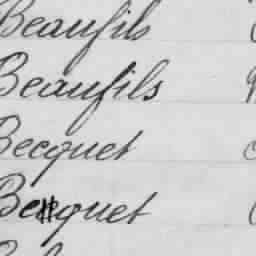 Beaufils
Beaufils
Becquet
Becquet